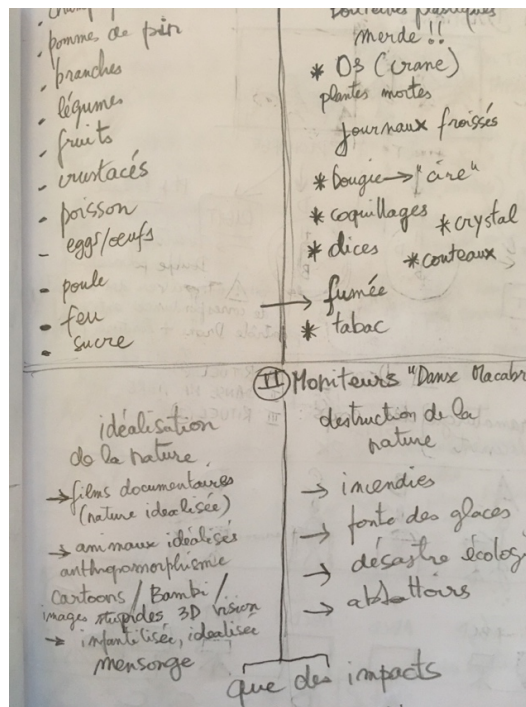 . pommes de pin
. branches
. légumes
. fruits
. crustacés
. poisson
- eggs/œufs
- poule
- feu
- sucre
merde !!
* Os (crane)
plantes mortes
journaux froissés
* bougie → "cire"
* coquillages
* crystal
* dices
* couteaux
→ fumée
* tabac
II Moniteurs "Danse Macabr
idéalisation
de la nature
→ films documentaires
(nature idealisée)
→ animaux idéalisés
anthropomorphisme
Cartoons / Bambi /
images stupides 3D vision
→ infantilisée, idealisée
mensonge
destruction de la
nature
→ incendies
→ fonte des glaces
→ désastre écolog
→ abbatoirs
que des impacts